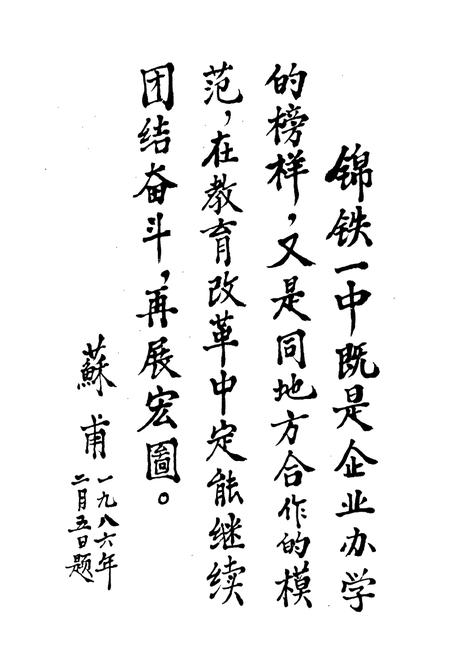 锦铁一中既是企业办学
的榜样，又是同地方合作的模
范，在教育改革中定能继续
团结奋斗，再展宏圖。
蘇甫
一九八六年
二月五日题